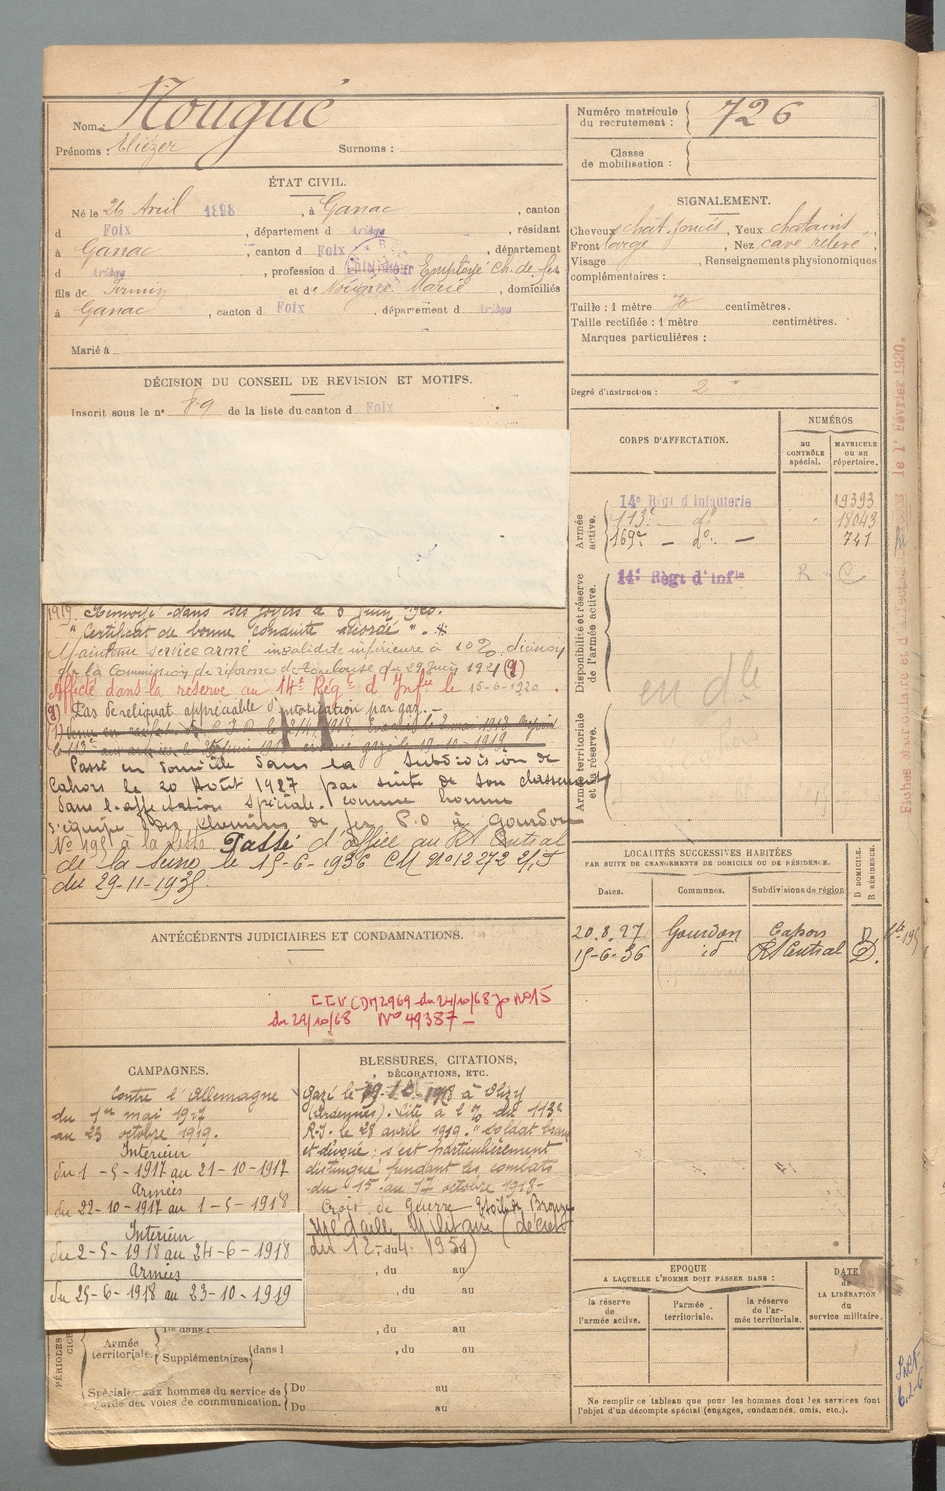 Nom : Nougué
Prénoms : Eliézer Surnoms :
ÉTAT CIVIL.
Né le 26 Avril 1898, à Ganac, canton
d Foix, département d Ariège, résidant
à Ganac, canton d Foix, département
d Ariège, profession d Employé Ch. de fer
fils de Firmin et de Nougué Marie, domiciliés
à Ganac, canton d Foix, département d Ariège
Marié à
DÉCISION DU CONSEIL DE REVISION ET MOTIFS.
Inscrit sous le n° 89 de la liste du canton d Foix
1919. Renvoyé dans ses foyers le juin
" Certificat de bonne conduite accordé ".
Maintenu service armé invalidité inférieure à 10 % décision
de la Commission de réforme de Toulouse du 29 juin 1921 (2)
Affecté dans la réserve au 14e Régt d'Infie le 15-6-1920.
(2) Pas de reliquat appréciable d'intoxication par gaz. —
Passé en domicile dans la Subdivision de
Cahors le 20 Août 1927 par suite de son classement
dans l'affectation spéciale, comme homme
d'équipe des chemins de fer P.O à Gourdon
à la liste Passé d'office au RT Central
de la Seine le 15-6-1936 CM No 12272 2/T
du 29-11-1935.
ANTÉCÉDENTS JUDICIAIRES ET CONDAMNATIONS.
du 24/10/68 No 15
du 29/10/68 No 49387 —
CAMPAGNES.
Contre l'Allemagne
du 1er mai 1917
au 23 octobre 1919.
Intérieur
du 1-5-1917 au 21-10-1917
Armées
du 22-10-1917 au 1-5-1918
Intérieur
du 2-5-1918 au 24-6-1918
Armées
du 25-6-1918 au 23-10-1919
BLESSURES, CITATIONS,
DÉCORATIONS, ETC.
Gazé le 1918 à Olizy
(Ardennes). Cité à l'O/ du 113e
R.I. le 28 avril 1919. "Soldat brave
et dévoué ; s'est particulièrement
distingué pendant les combats
du 15 au 17 octobre 1918-
Croix de Guerre Etoile de Bronze
Médaille Militaire (décret
du 12-4-1951)
, du au
, du au
PÉRIODES
Armée territoriale.
Supplémentaires
dans l , du au
, du au
Spéciale aux hommes du service de garde des voies de communication.
Du au
Du au
Numéro matricule
du recrutement : 726
Classe
de mobilisation :
SIGNALEMENT.
Cheveux chât. foncés, Yeux chatains
Front large, Nez cave relevé
Visage , Renseignements physionomiques
complémentaires :
Taille : 1 mètre 70 centimètres.
Taille rectifiée : 1 mètre centimètres.
Marques particulières :
Degré d'instruction : 2
CORPS D'AFFECTATION.
NUMÉROS
au CONTRÔLE spécial.
MATRICULE ou au répertoire.
Armée active.
14e Régt d'Infanterie 19393
113e — do — 18043
169e — do — 741
Disponibilité et réserve de l'armée active.
14e Régt d'Infie R C
en dle
Armée territoriale et sa réserve.
LOCALITÉS SUCCESSIVES HABITÉES
PAR SUITE DE CHANGEMENTS DE DOMICILE OU DE RÉSIDENCE.
Dates. Communes. Subdivisions de région
D DOMICILE.
R RÉSIDENCE.
20.8.27 Gourdon Cahors D
15-6-36 id RT Central D.
EPOQUE
A LAQUELLE L'HOMME DOIT PASSER DANS :
la réserve de l'armée active.
l'armée territoriale.
la réserve de l'armée territoriale.
DATE
de LA LIBÉRATION
du service militaire.
Ne remplir ce tableau que pour les hommes dont les services font
l'objet d'un décompte spécial (engagés, condamnés, omis, etc.).
le 1er Février 1920.